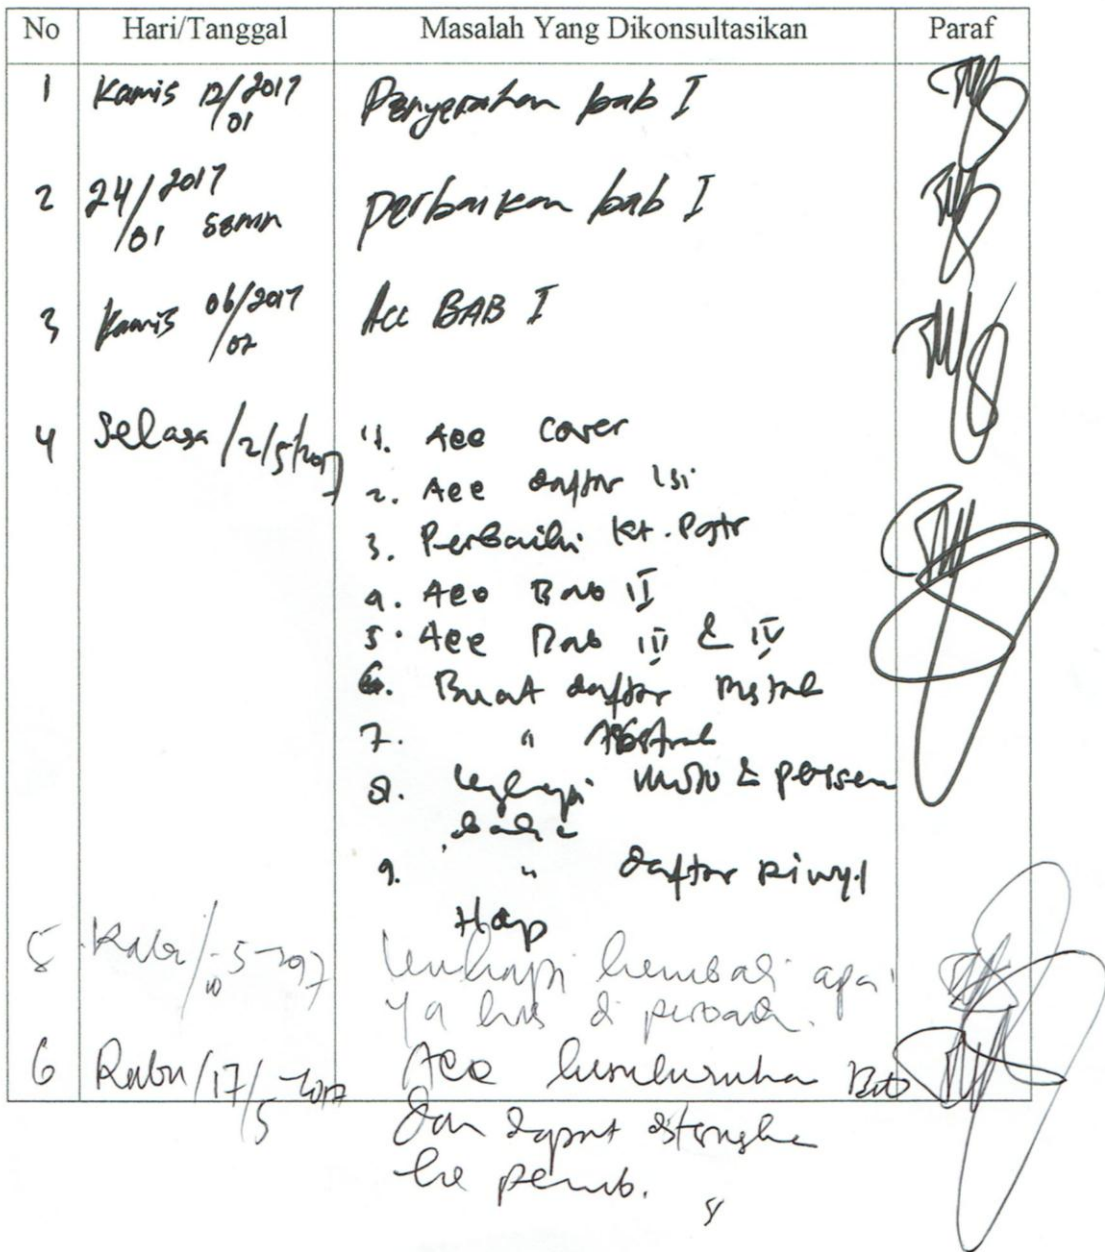 No Hari/Tanggal Masalah Yang Dikonsultasikan Paraf
1 Kamis 12/01 2017 Penyerahan bab I
2 24/01 2017 senin perbaikan bab I
3 Kamis 06/02 2017 Acc BAB I
4 Selasa /2/5/2017 1. Acc cover
2. Acc daftar isi
3. Perbaiki Kt. Pgtr
4. Acc Bab II
5. Acc Bab III & IV
6. Buat daftar Pustak
7. " Abstrak
8. lengkapi moto & persem
baha
9. " daftar Riwyt
Hdp
5 Rabu/10-5-2017 lengkapi kembali apa
yg hrs di perbaiki.
6 Rabu/17/5-2017 Acc keseluruha Bab
dan dapat diteruska
ke pemb.